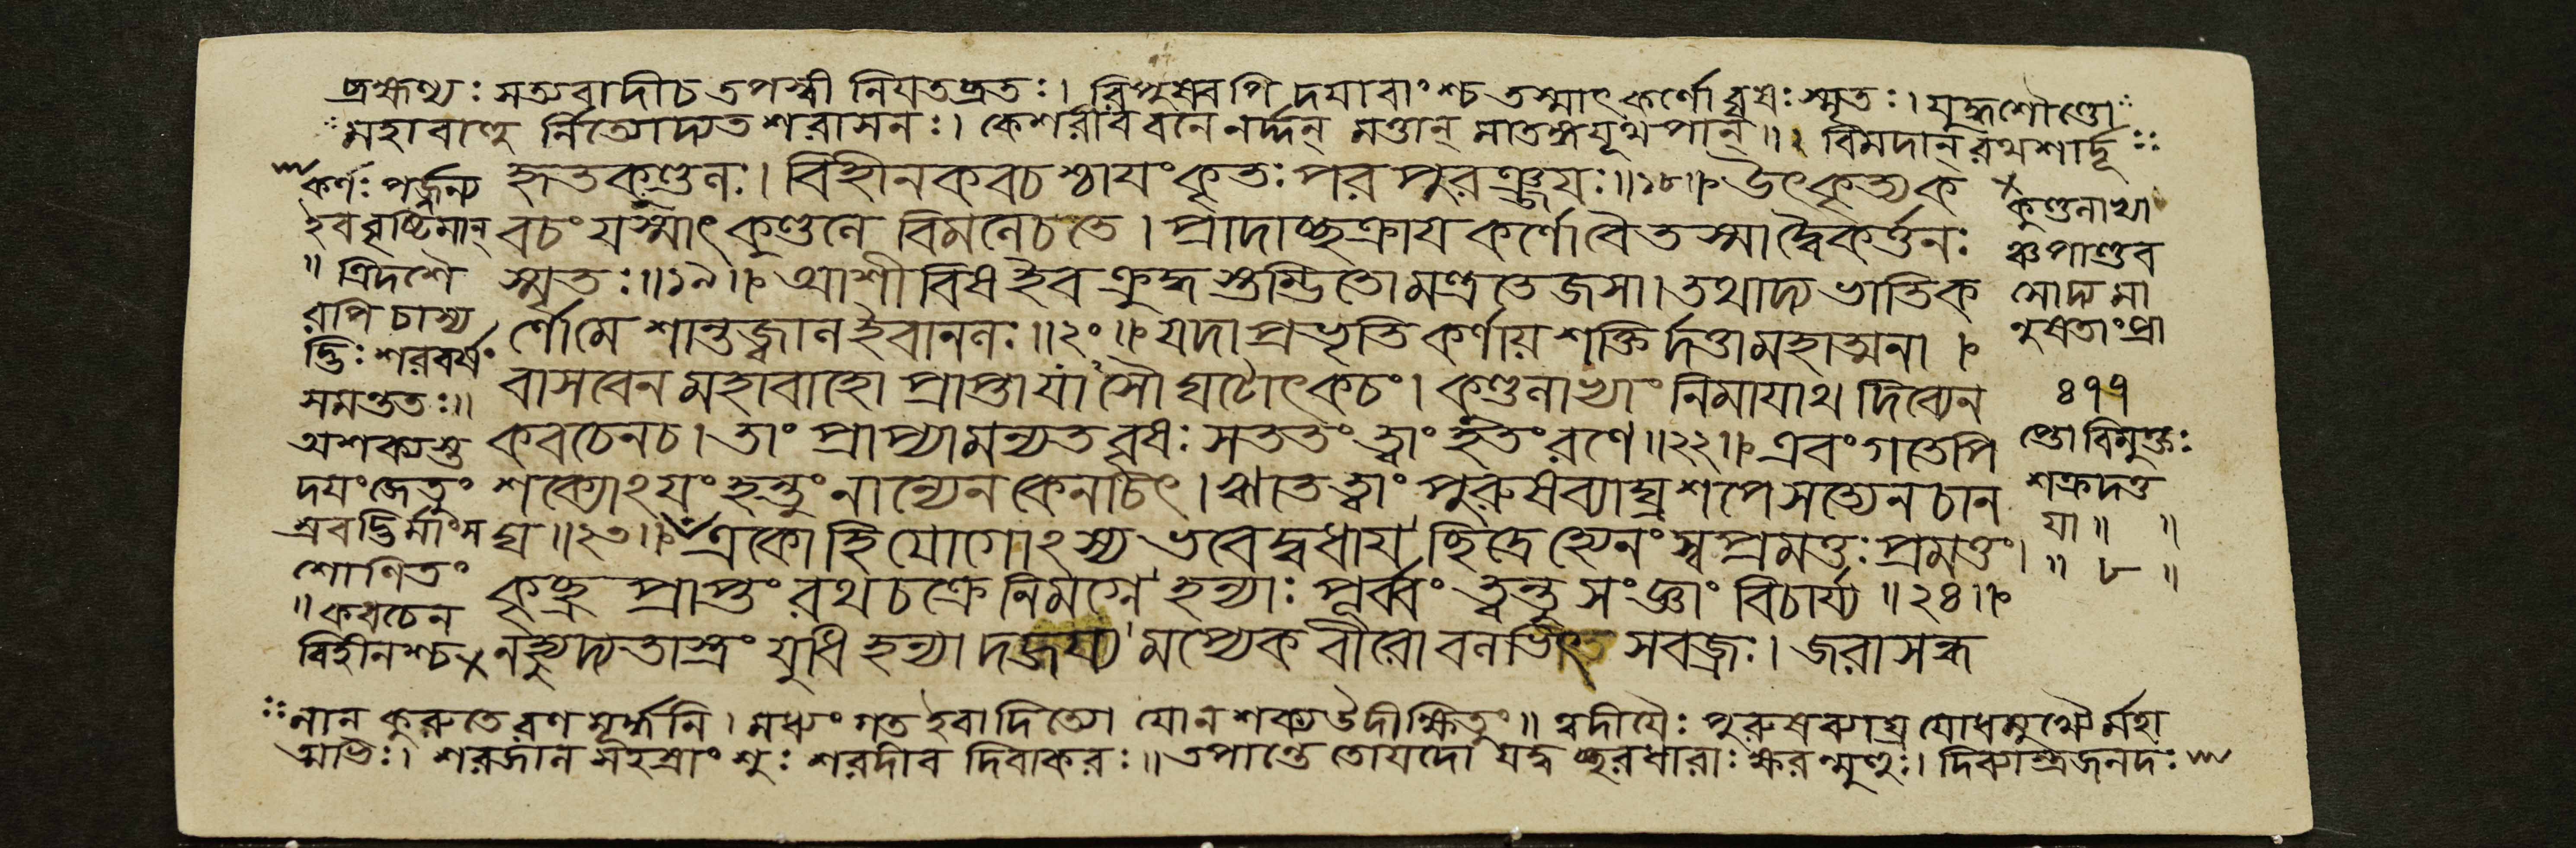 ব্রহ্মণ্যঃ সত্যবাদীচ তপস্বী নিয়তব্রতঃ। রিপুষ্বেবপি দয়াবাংশ্চ তস্মাৎ কর্ণো বৃষঃ স্মৃতঃ। যুদ্ধশৌণ্ডো
মহাবাহু র্নিত্যোদ্যত শরাসনঃ। কেশরীব বনে নর্দ্দন্ মত্তান্ মাতঙ্গযূথপান্॥ বিমদান্ রথশার্দূ
কর্ণঃ পর্জ্জন্য
ইব বৃষ্টিমান্
॥ ত্রিদশৈ
রপি চাস্য
দ্ভিঃ শরবর্ষং
সমন্ততঃ॥
অশক্যস্তু
দয়ং জেতুং
শ্রবদ্ভির্মাংস
শোণিতং
॥ কবচেন
বিহীনশ্চ
হৃতকুণ্ডলঃ। বিহীনকবচশ্চায়ং কৃতঃ পরপুরঞ্জয়ঃ॥১৮॥ উৎকৃত্যক
বচং যস্মাৎ কুণ্ডলে বিমলেচতে। প্রাদাচ্ছক্রায় কর্ণোবৈ তস্মাদ্বৈকর্ত্তনঃ
স্মৃতঃ॥১৯॥ আশীবিষ ইব ক্রুদ্ধ স্তম্ভিতো মন্ত্রতেজসা। তথাদ্য ভাতিক
র্ণোমে শান্তজ্বাল ইবানলঃ॥২০॥ যদা প্রভৃতি কর্ণায় শক্তি র্দত্তা মহাত্মনা
বাসবেন মহাবাহো প্রাপ্তা যা সৌ ঘটোৎকচং। কুণ্ডলাভ্যাং নিমায়াথ দিব্যেন
কবচেনচ। তাং প্রাপ্যামন্যত বৃষঃ সততং ত্বাং হতং রণে॥২২॥ এবং গতেপি
শক্যোঽয়ং হন্তুং নান্যেন কেনচিৎ। ঋতে ত্বাং পুরুষব্যাঘ্র শপে সত্যেন চান
ঘ॥২৩॥ একো হি যোগোঽস্য ভবেদ্বধায় ছিদ্রে হ্যেনং স্বপ্রমত্তঃ প্রমত্তং।
কৃচ্ছ্র প্রাপ্তং রথচক্রে নিমগ্নে হন্যাঃ পূর্ব্বং ত্বন্তু সংজ্ঞাং বিচার্য্য॥২৪॥
নহ্যুদ্যতাস্ত্রং যুধি হন্যা দজয্য মপ্যেক বীরো বলভিৎ সবজ্রঃ। জরাসন্ধ
কুণ্ডলাভ্যা
ঞ্চ পাণ্ডব
সোদ্য মা
নুষতাং প্রা
৪৭৭
প্তো বিমুক্তঃ
শক্রদত্ত
য়া॥ ॥
॥ ৮ ॥
লান কুরুতে রণমূর্দ্ধনি। মধ্যং গত ইবাদিত্যো যোন শক্য উদীক্ষিতুং॥ ত্বদীয়ৈঃ পুরুষব্যাঘ্র যোধমুখ্যৈ র্মহা
ত্মভিঃ। শরজাল সহস্রাংশুঃ শরদীব দিবাকরঃ॥ তপান্তে তোয়দো যদ্ব চ্ছরধারাঃ ক্ষরন্মুহুঃ। দিব্যাস্ত্রজলদঃ